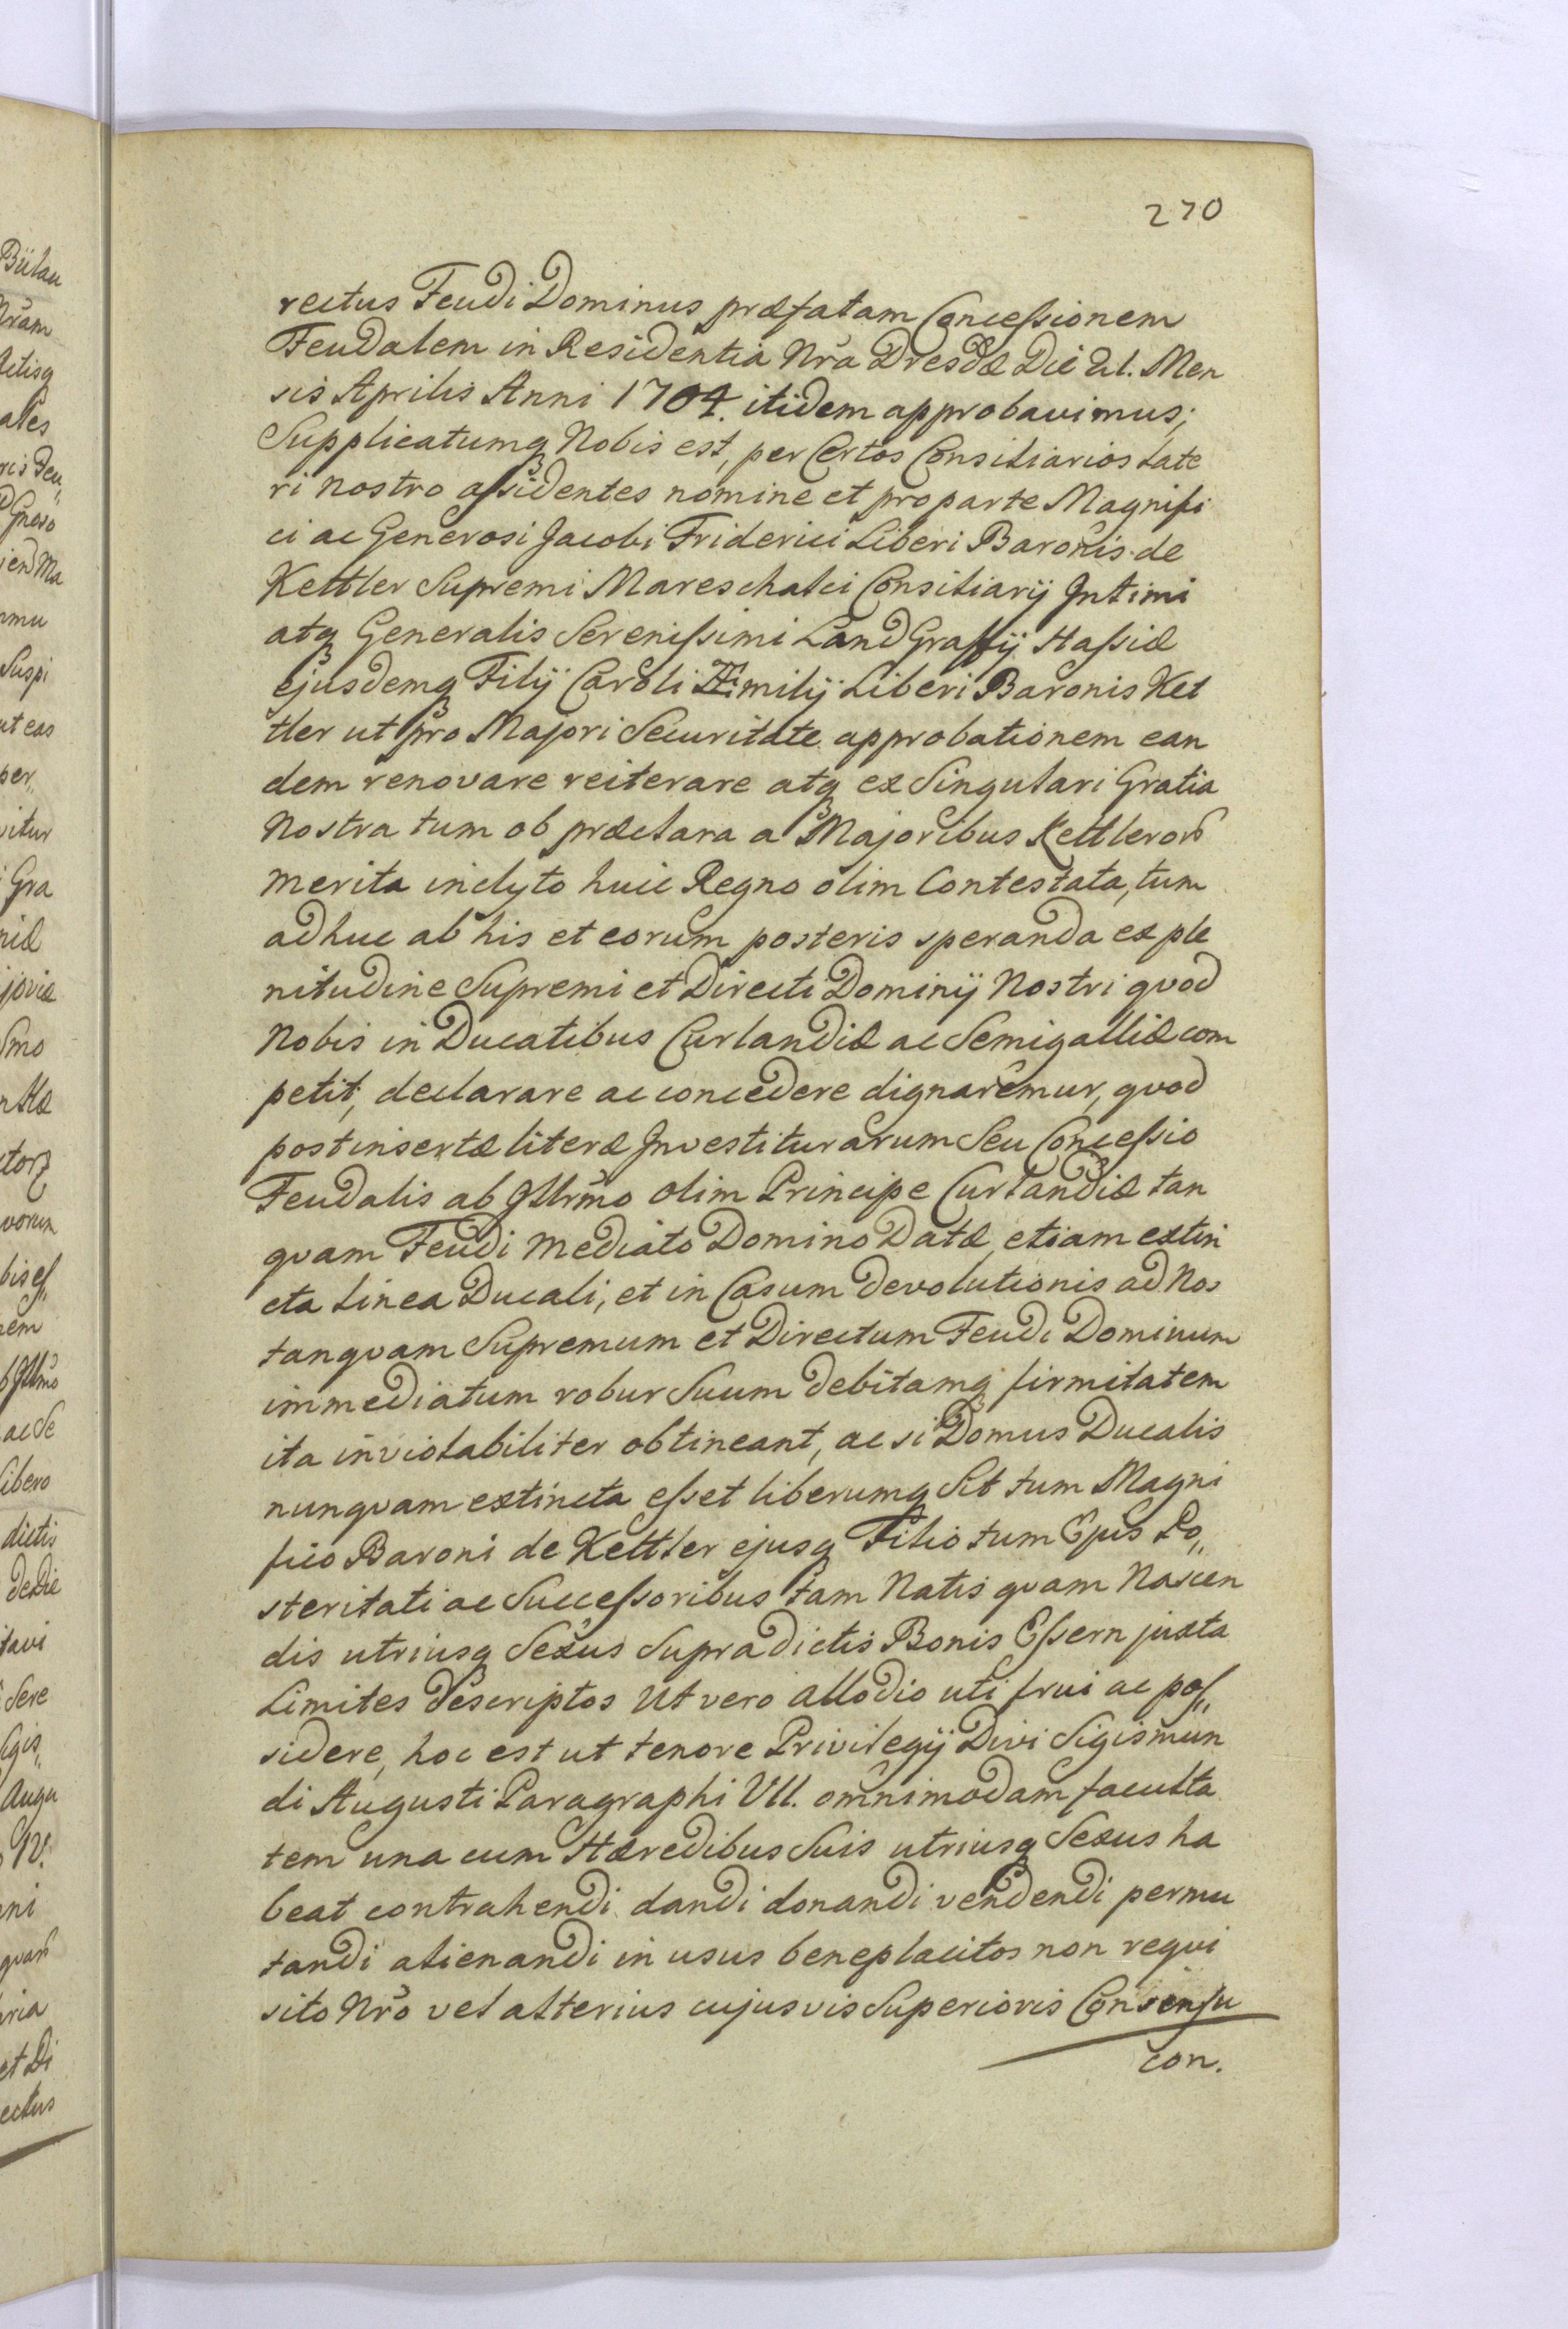 270
rectus Feudi Dominus præfatam Concessionem
Feudalem in Residentia Nra Dresdæ Die 21. Men
sis Aprilis Anni 1704. itidem approbavimus;
Supplicatumq Nobis est, per Certos Consiliarios Late
ri nostro assidentes nomine et pro parte Magnifi
ci ac Generosi Jacobi Friderici Liberi Baronis de
Kettler Supremi Mareschalci Consiliarij Intimi
atq Generalis Serenissimi LandGraffij Hassiæ
ejusdemq Filij Caroli Æmilij Liberi Baronis Ket
tler ut pro Majori Securitate approbationem ean
dem renovare reiterare atq ex Singulari Gratia
Nostra tum ob præclara a Majoribus Kettleror
merita inclyto huic Regno olim Contestata, tum
adhuc ab his et eorum posteris speranda ex ple
nitudine Supremi et Directi Dominij Nostri qvod
Nobis in Ducatibus Curlandiæ ac Semigalliæ com
petit, declarare ac concedere dignaremur, qvod
postinsertæ literæ Investiturarum Seu Concessio
Feudalis ab Illrmo olim Principe Curlandiæ tan
qvam Feudi Mediato Domino Datæ, etiam extin
cta Linea Ducali, et in Casum devolutionis ad Nos
tanqvam Supremum et Directum Feudi Dominum
immediatum robur Suum debitamq firmitatem
ita inviolabiliter obtineant, ac si Domus Ducalis
nunqvam extincta esset liberumq Sit tum Magni
fico Baroni de Kettler ejusq Filio tum Ejus Po„
steritati ac Successoribus tam Natis qvam Nascen
dis utriusq Sexus Supradictis Bonis Essern juxta
Limites descriptos Ut vero allodio uti frui ac pos„
sidere, hoc est ut tenore Privilegij Divi Sigismun
di Augusti Paragraphi VII. omnimodam faculta
tem una cum Hæredibus Suis utriusq Sexus ha
beat contrahendi dandi donandi vendendi permu
tandi alienandi in usus beneplacitos non reqvi
sito Nro vel alterius cujusvis Superioris Consensu
con.